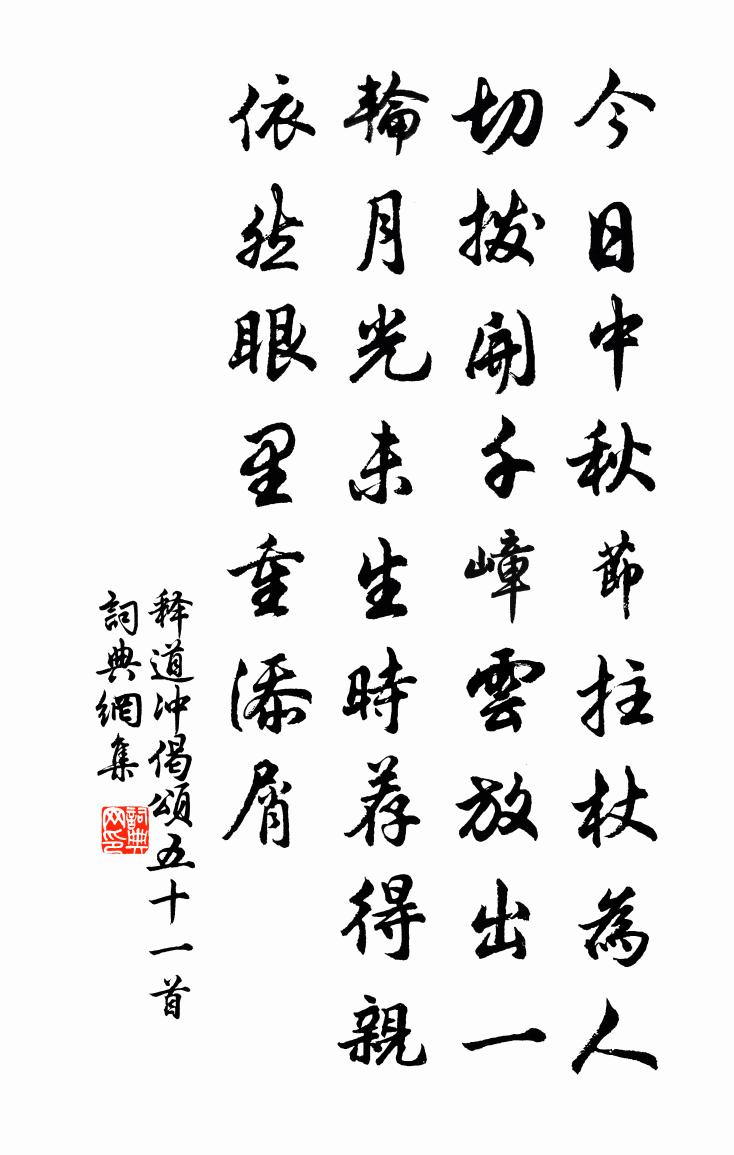 今日中秋節拄杖為人
切撥開千嶂雲放出一
輪月光未生時荐得親
依然眼里重添屑
释道冲偈頌五十一首
詞典網集
詞典网印